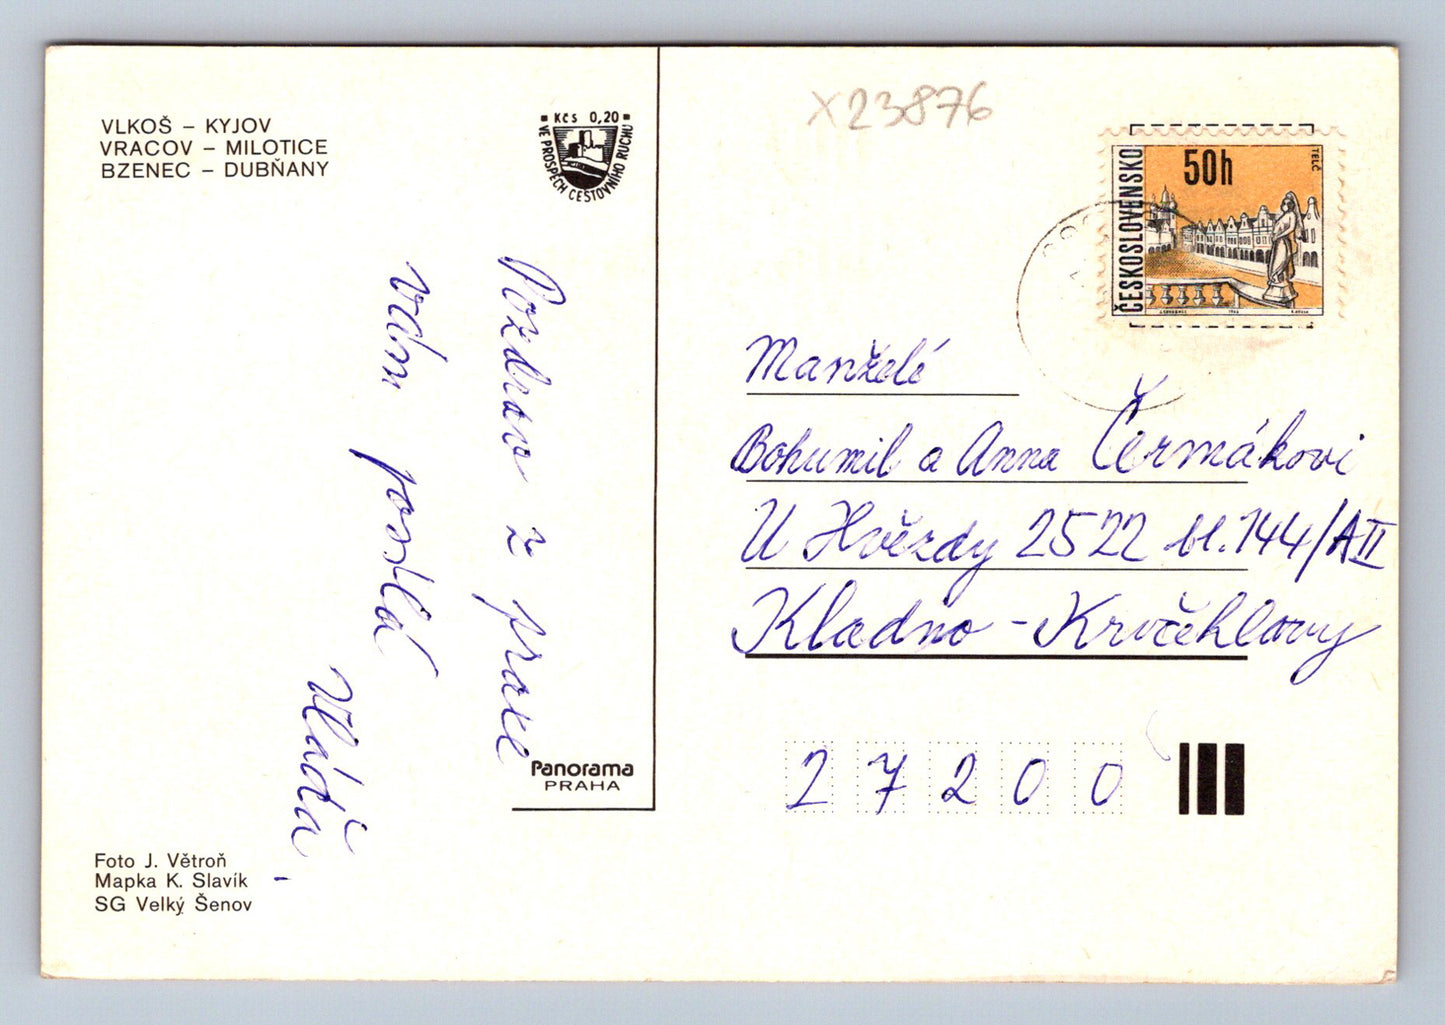 VLKOŠ – KYJOV
VRACOV – MILOTICE
BZENEC – DUBŇANY
Kčs 0,20
VE PROSPĚCH CESTOVNÍHO RUCHU
X23876
ČESKOSLOVENSKO
50h
TELČ
Pozdrav z práce
vám posílá
Vláďa.
Manželé
Bohumil a Anna Čermákovi
U Hvězdy 2522 bl.144/AII
Kladno - Krvčehlavy
27200
Panorama
PRAHA
Foto J. Větroň
Mapka K. Slavík
SG Velký Šenov